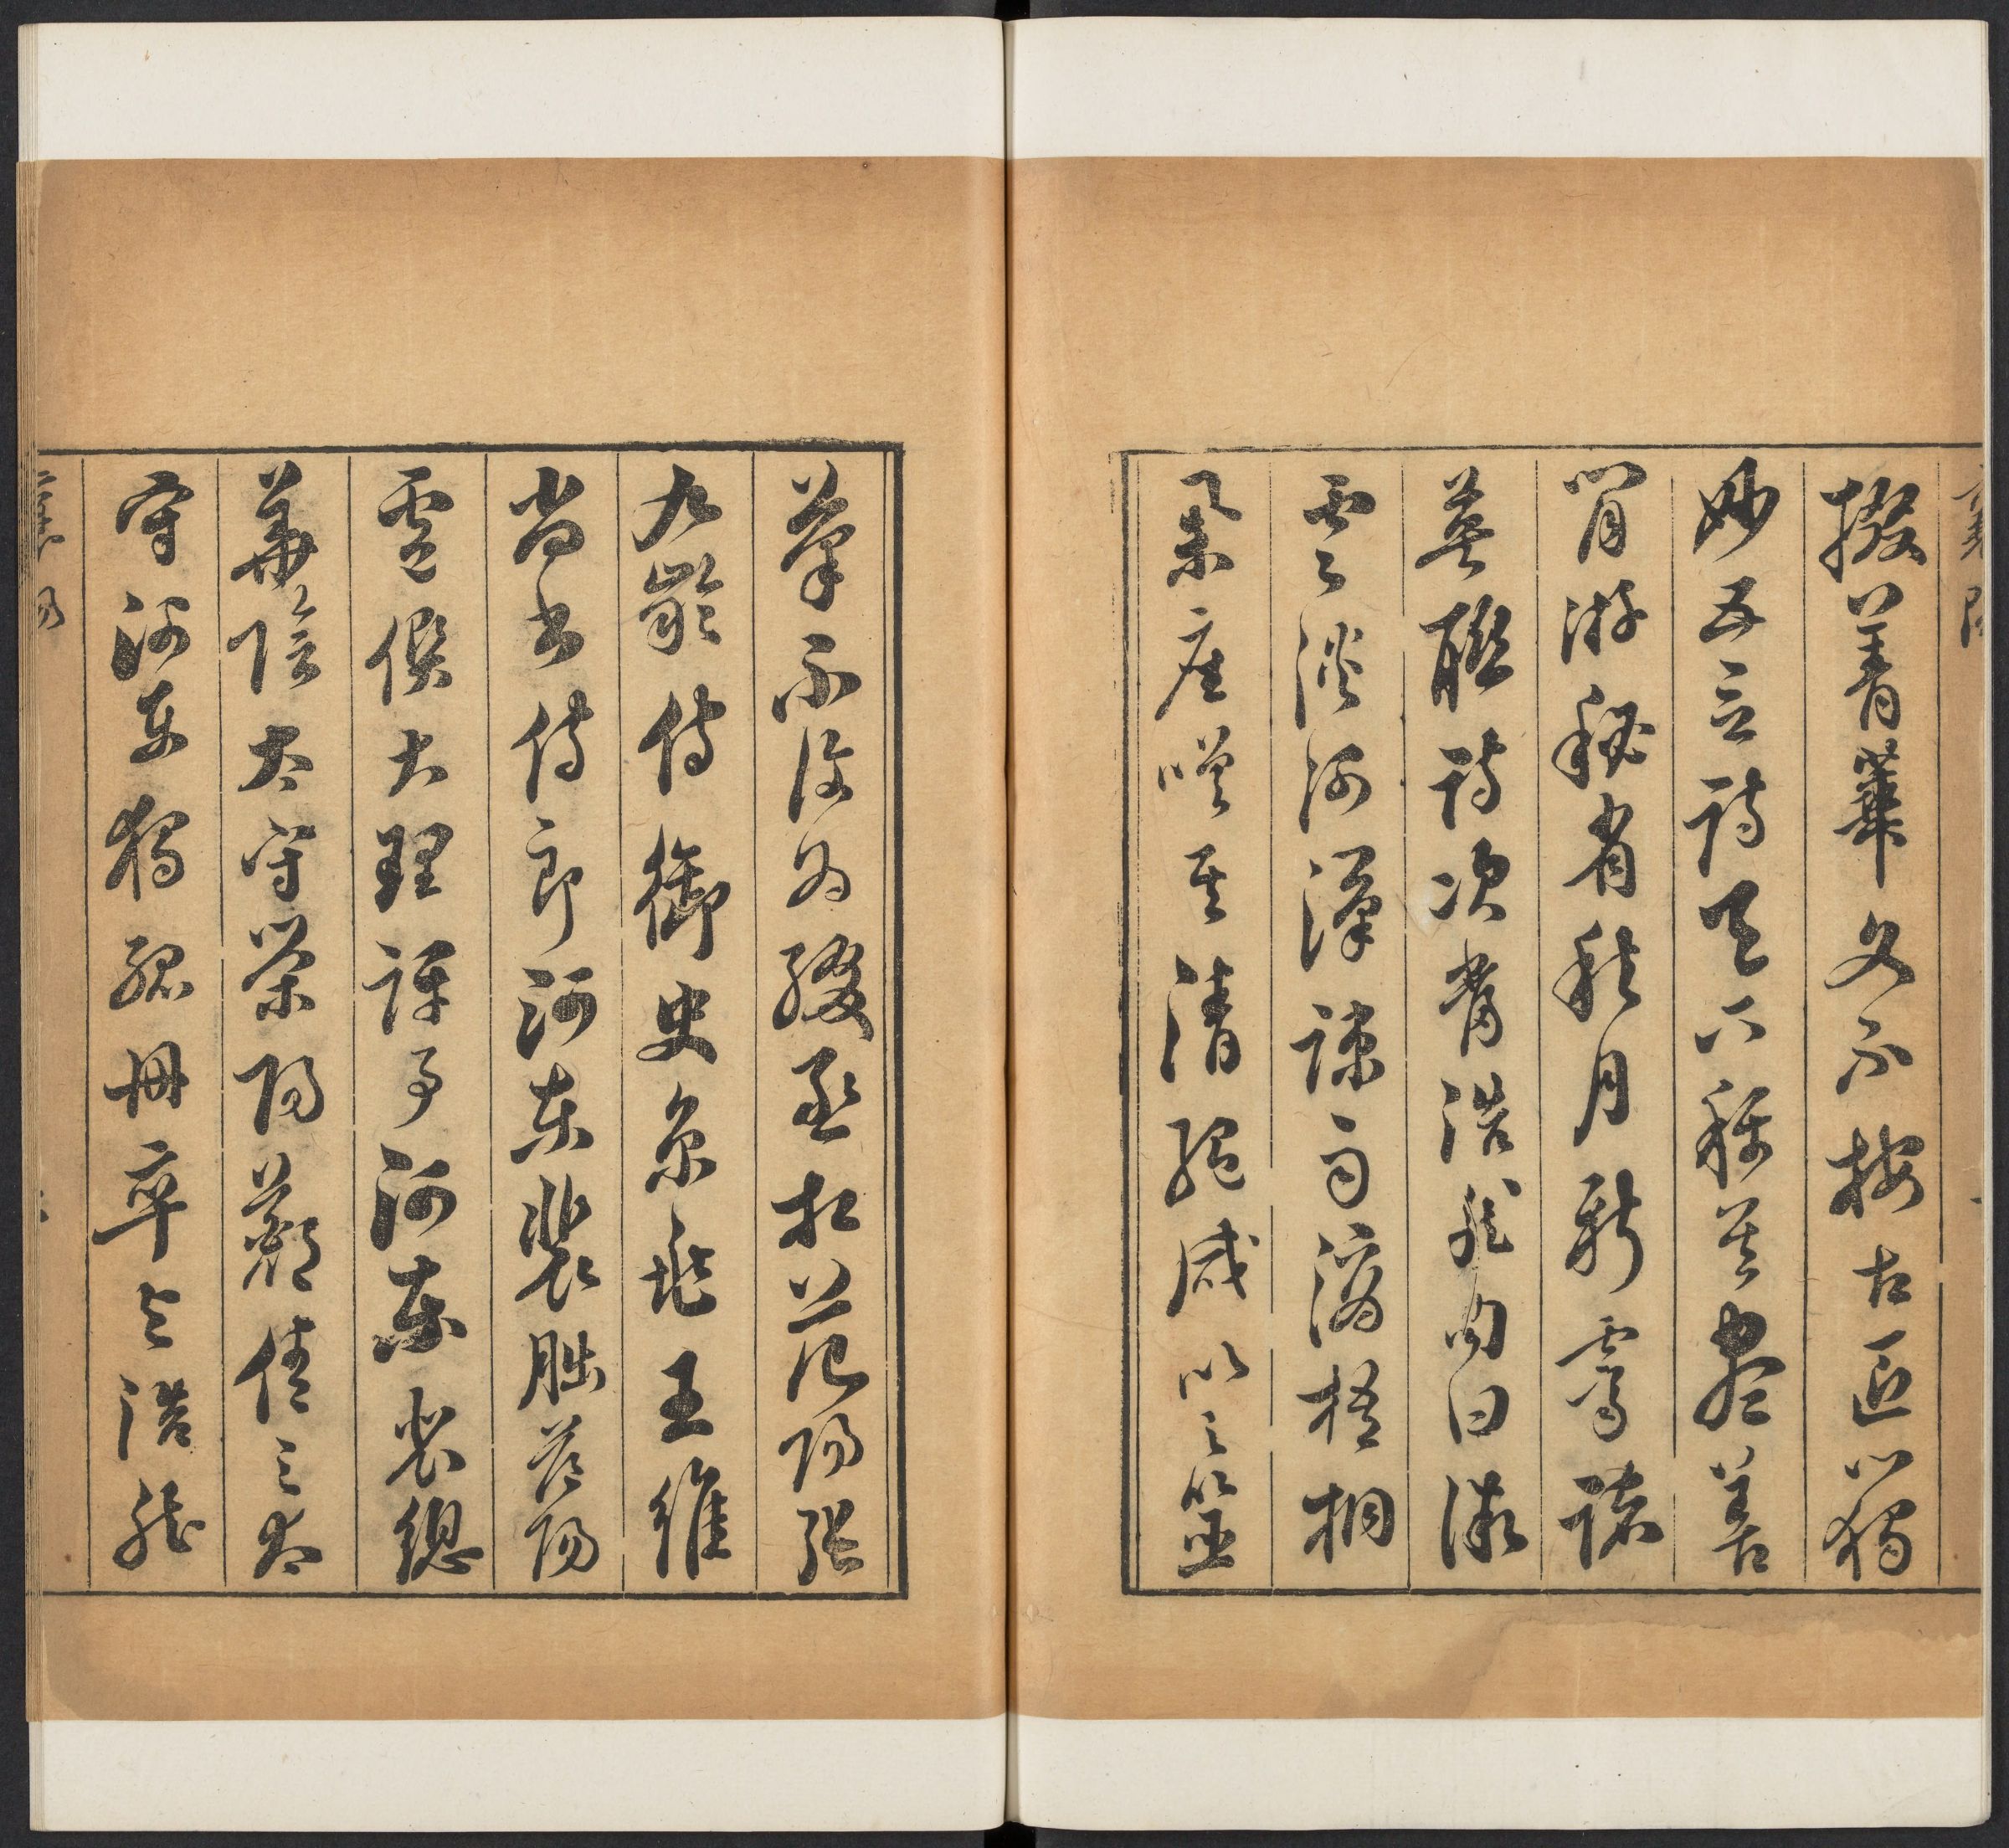 掇菁華文不按古匠心獨
妙五言詩天下稱其盡善
閒游秘省秋月新霽諸
英聯詩次當浩然句曰微
雲淡河漢疎雨滴梧桐
舉座嗟其清絕咸以之
筆不復為綴丞相范陽張
九齡侍御史京兆王維
尚書侍郎河東裴朏范陽
盧僎大理評事河東裴總
華陰太守滎陽鄭倩之太
守河東獨孤冊率與浩然